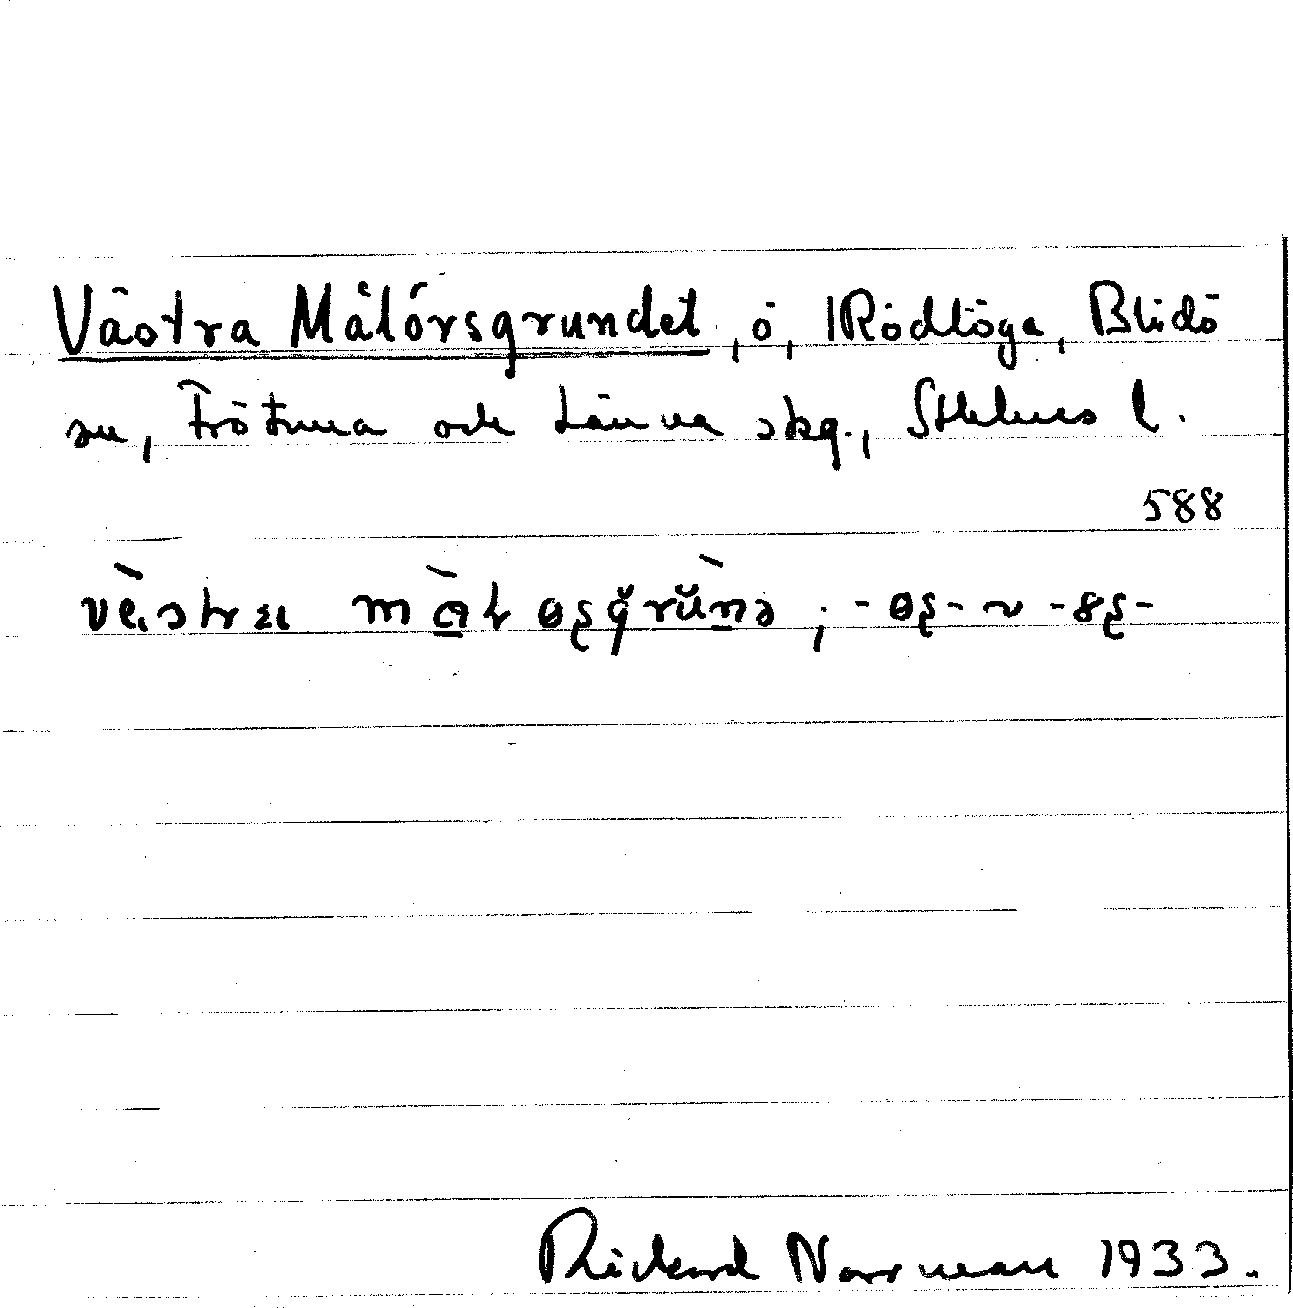 Västra Målörsgrundet, ö, Rödlöga, Blidö
sn, Frötuna och Länna skg., Sthlms l.
588
Rickard Norrman 1933.